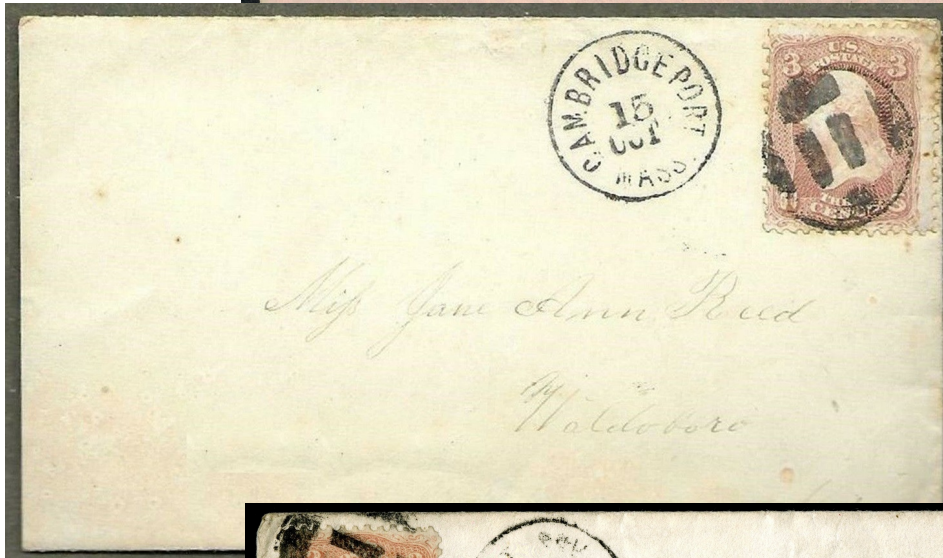 CAMBRIDGEPORT
15
OCT
MASS.
U.S.
POSTAGE
3 3
CENTS
Miss Jane Ann Reed
Waldoboro